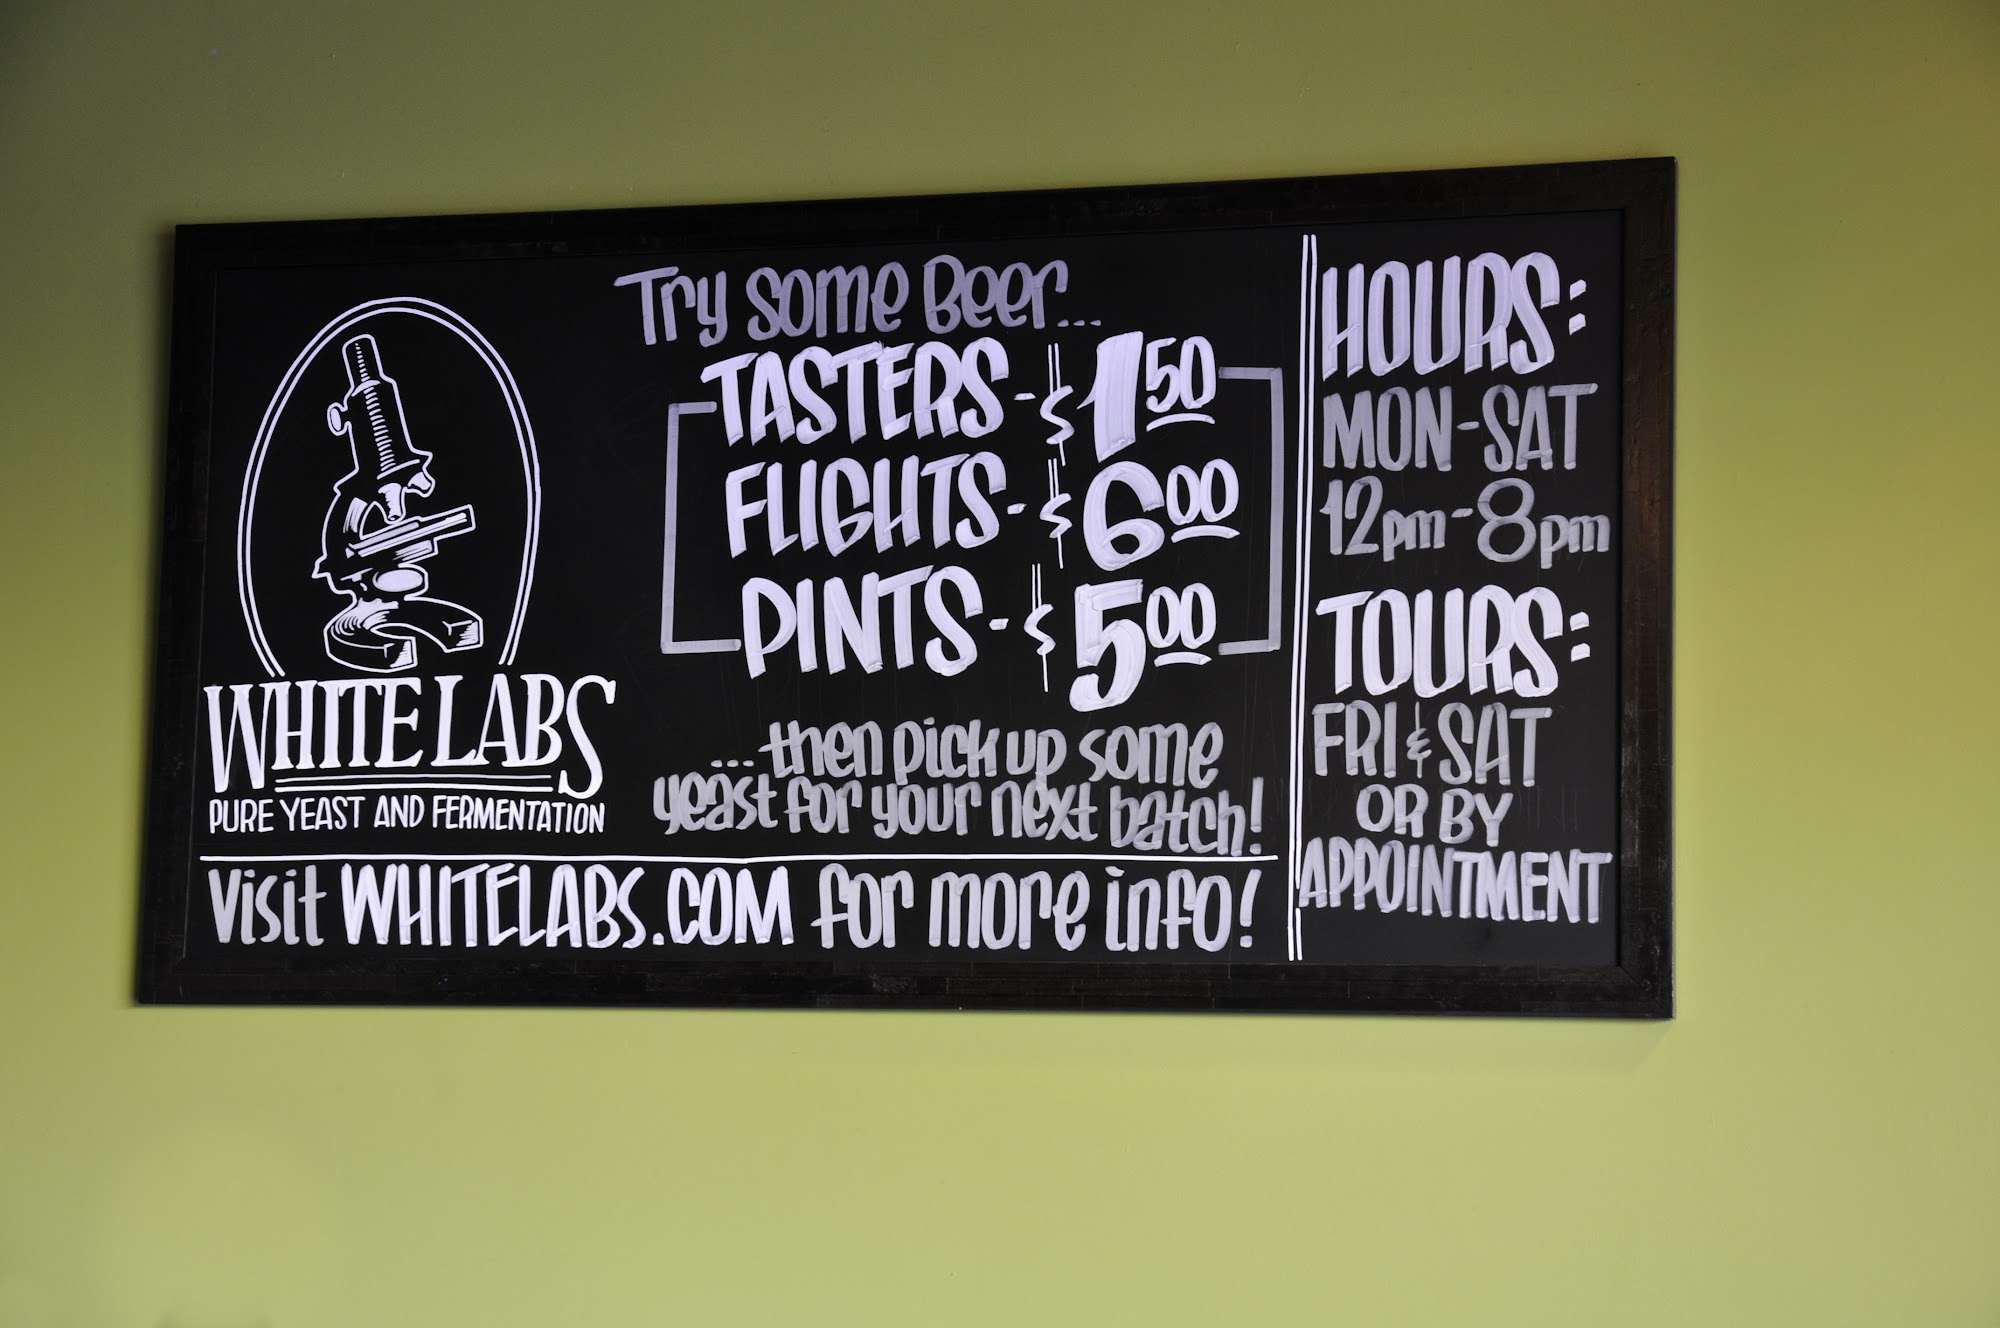 WHITE LABS
PURE YEAST AND FERMENTATION
Try some Beer...
TASTERS - $1.50
FLIGHTS - $6.00
PINTS - $5.00
...then pick up some
yeast for your next batch!
Visit WHITELABS.COM for more info!
HOURS:
MON-SAT
12pm-8pm
TOURS:
FRI & SAT
OR BY
APPOINTMENT